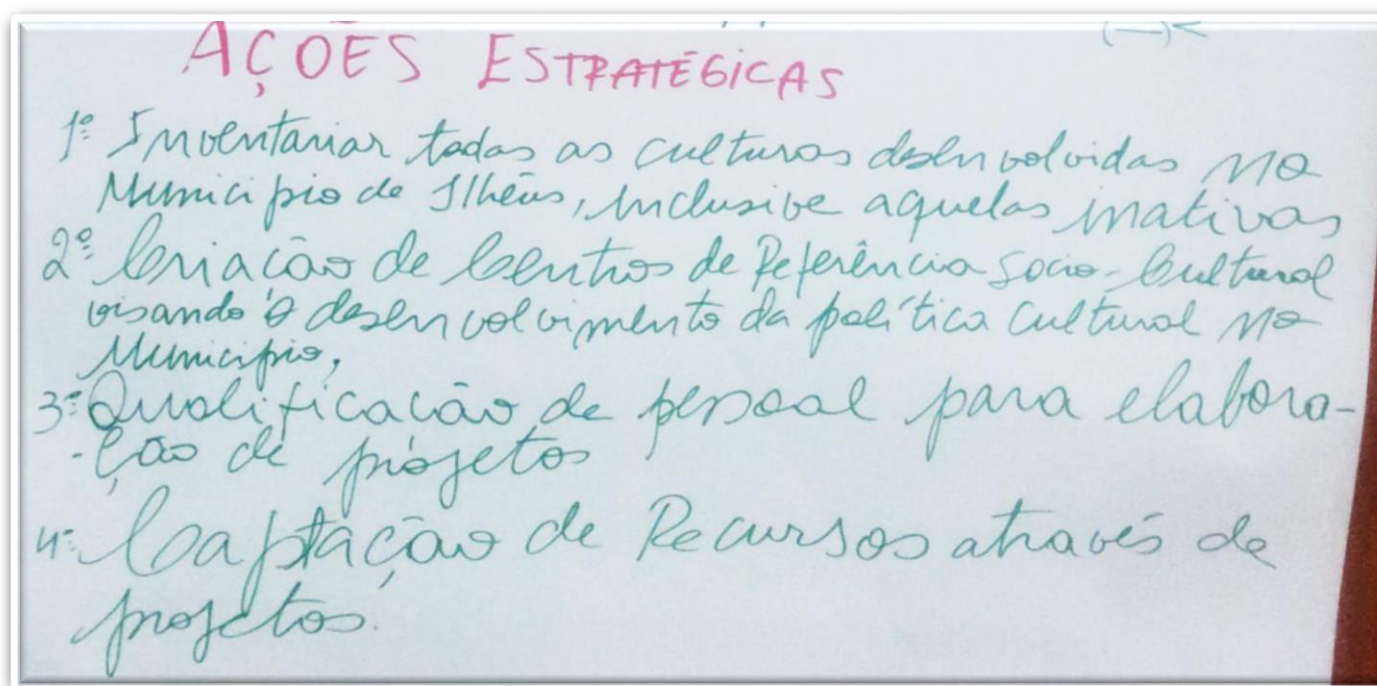 AÇÕES ESTRATÉGICAS
1º Inventariar todas as culturas desenvolvidas no
Município de Ilhéus, inclusive aquelas inativas
2º Criação de Centros de Referência Socio-Cultural
visando o desenvolvimento da política cultural no
Município,
3º Qualificação de pessoal para elabora-
-ção de projetos
4º Captação de Recursos através de
projetos.